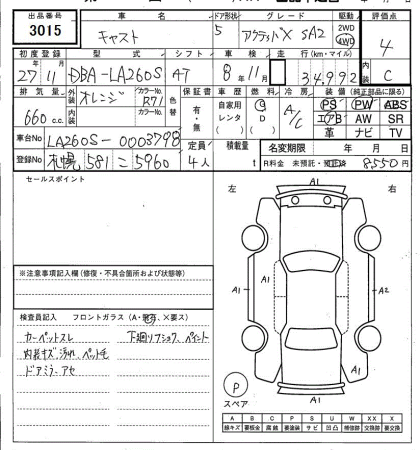 出品番号 車名 ドア形状 グレード 駆動 評価点
3015 キャスト 5 アクティバX SA2 2WD 4WD 4
初度登録 型式 シフト 車検 走行 (km・マイル) 内装
27年11月 DBA-LA260S AT 8年11月 34,992 C
排気量 外装 オレンジ カラーNo. R71 色替 保証書 車歴 燃料 冷房 装備 (純正部品に限る)
660 c.c. 内装 カラーNo. 有・無 自家用 レンタ G D A/C PS PW ABS
エアB AW SR
革 ナビ TV
車台No LA260S-0003798 定員 積載量 名変期限 年 月 日
登録No 札幌 581 こ 5960 4人 t R料金 未預託・預託済 8550円
セールスポイント
左 右
A1
※注意事項記入欄 (修復・不具合箇所および状態等)
A1 A1 A2
検査員記入欄 フロントガラス (A・飛石、×要ス)
カーペットスレ 下廻りフショク、ペイント
内装キズ汚れ、ペット毛
ドアミラーアセ
A1 A1
P
スペア
A1
A B C P S U W X XX X
線キズ 要板金 腐蝕 要塗装 サビ 凹凸 補修跡 要交換 交換済